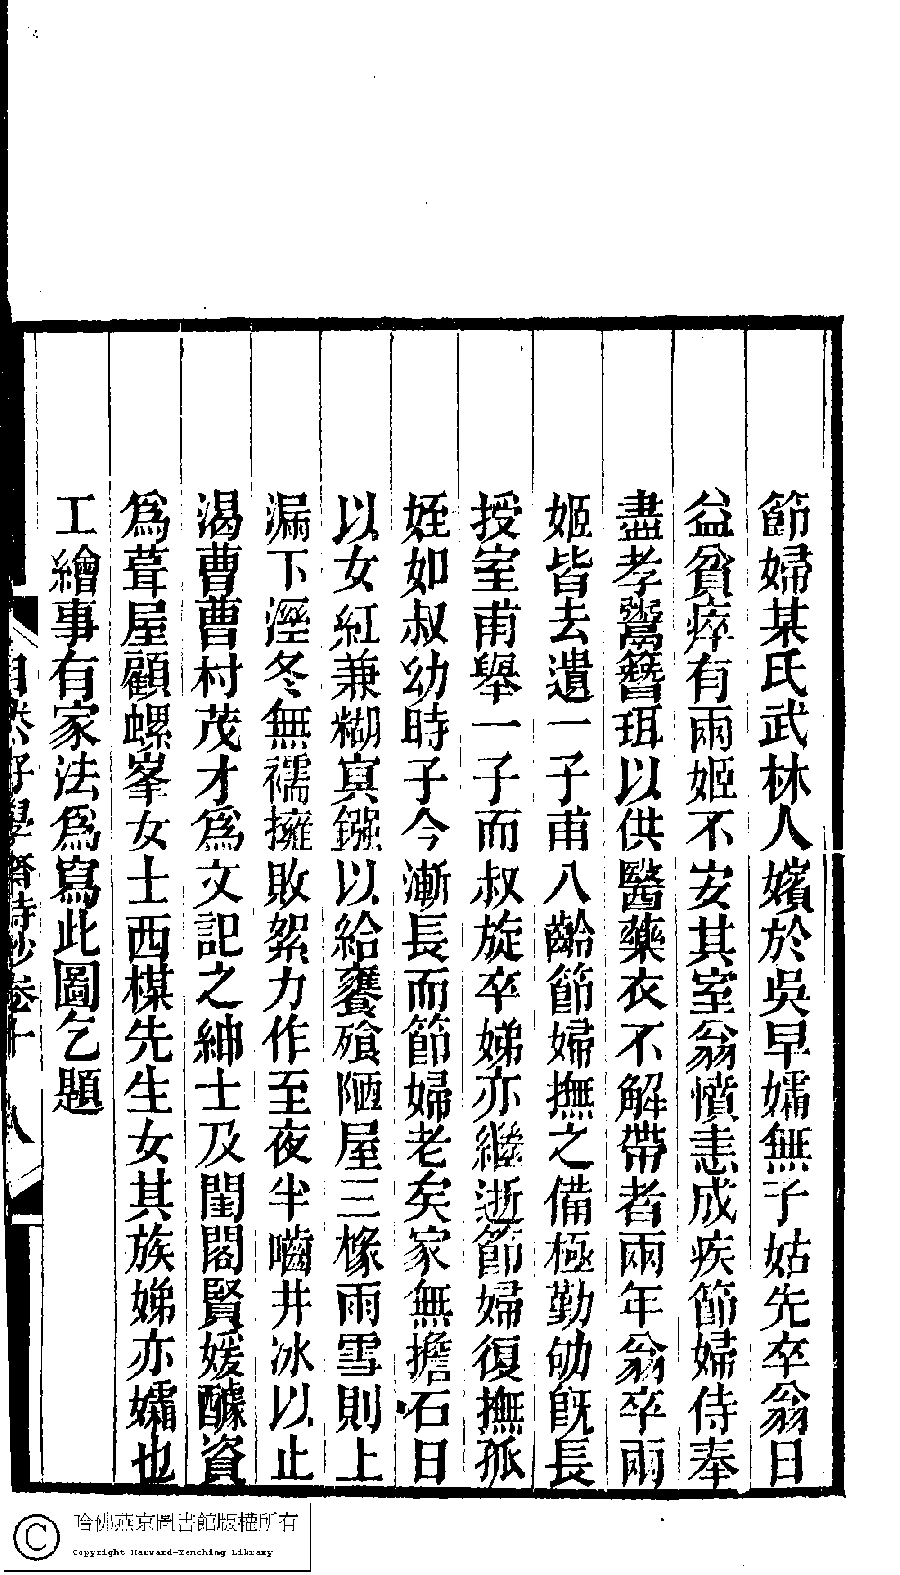 節婦某氏武林人嬪於吳早孀無子姑先卒翁日
益貧瘁有兩姬不安其室翁憤恚成疾節婦侍奉
盡孝鬻簪珥以供醫藥衣不解帶者兩年翁卒兩
姬皆去遺一子甫八齡節婦撫之備極勤劬旣長
授室甫舉一子而叔旋卒娣亦繼逝節婦復撫孤
姪如叔幼時子今漸長而節婦老矣家無擔石日
以女紅兼糊冥鏹以給饔飱陋屋三椽雨雪則上
漏下溼冬無襦擁敗絮力作至夜半嚙井冰以止
渴曹曹村茂才爲文記之紳士及閨閣賢媛醵資
爲葺屋顧螺峯女士西楳先生女其族娣亦孀也
工繪事有家法爲寫此圖乞題
自然好學齋詩鈔卷十 八
哈佛燕京圖書館版權所有
Copyright Harvard-Yenching Library